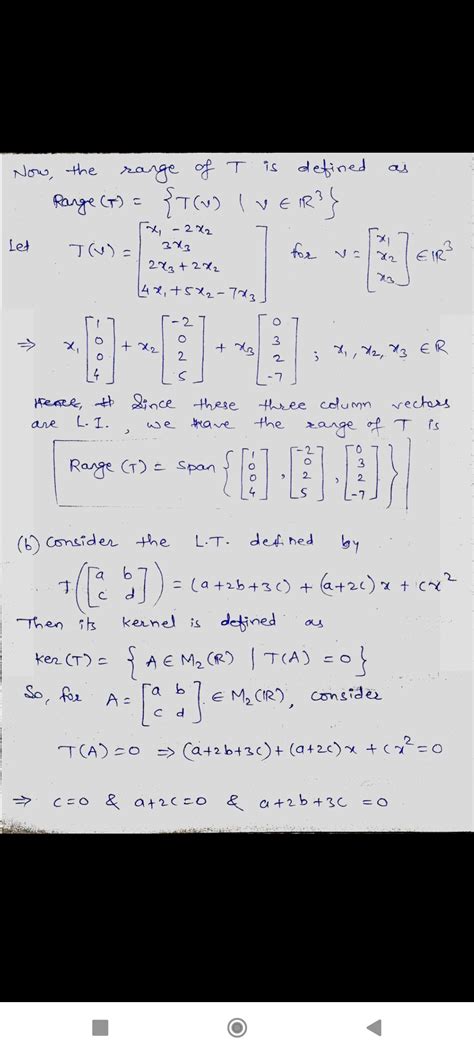 Now, the range of T is defined as
Range(T) = {T(v) | v ∈ ℝ³}
Let T(v) = [x₁ - 2x₂; 3x₃; 2x₃ + 2x₂; 4x₁ + 5x₂ - 7x₃] for v = [x₁; x₂; x₃] ∈ ℝ³
⇒ x₁ [1; 0; 0; 4] + x₂ [-2; 0; 2; 5] + x₃ [0; 3; 2; -7] ; x₁, x₂, x₃ ∈ ℝ
Since these three column vectors
are L.I. , we have the range of T is
Range (T) = span { [1; 0; 0; 4], [-2; 0; 2; 5], [0; 3; 2; -7] }
(b) Consider the L.T. defined by
T([a b; c d]) = (a+2b+3c) + (a+2c)x + cx²
Then its kernel is defined as
Ker(T) = { A ∈ M₂(ℝ) | T(A) = 0 }
So, for A = [a b; c d] ∈ M₂(ℝ), consider
T(A) = 0 ⇒ (a+2b+3c) + (a+2c)x + cx² = 0
⇒ c=0 & a+2c=0 & a+2b+3c = 0